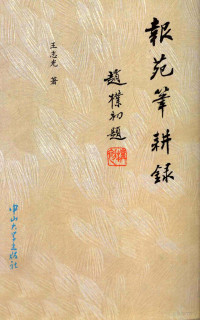 報苑筆耕録
趙樸初題
王志光 著
中山大學出版社